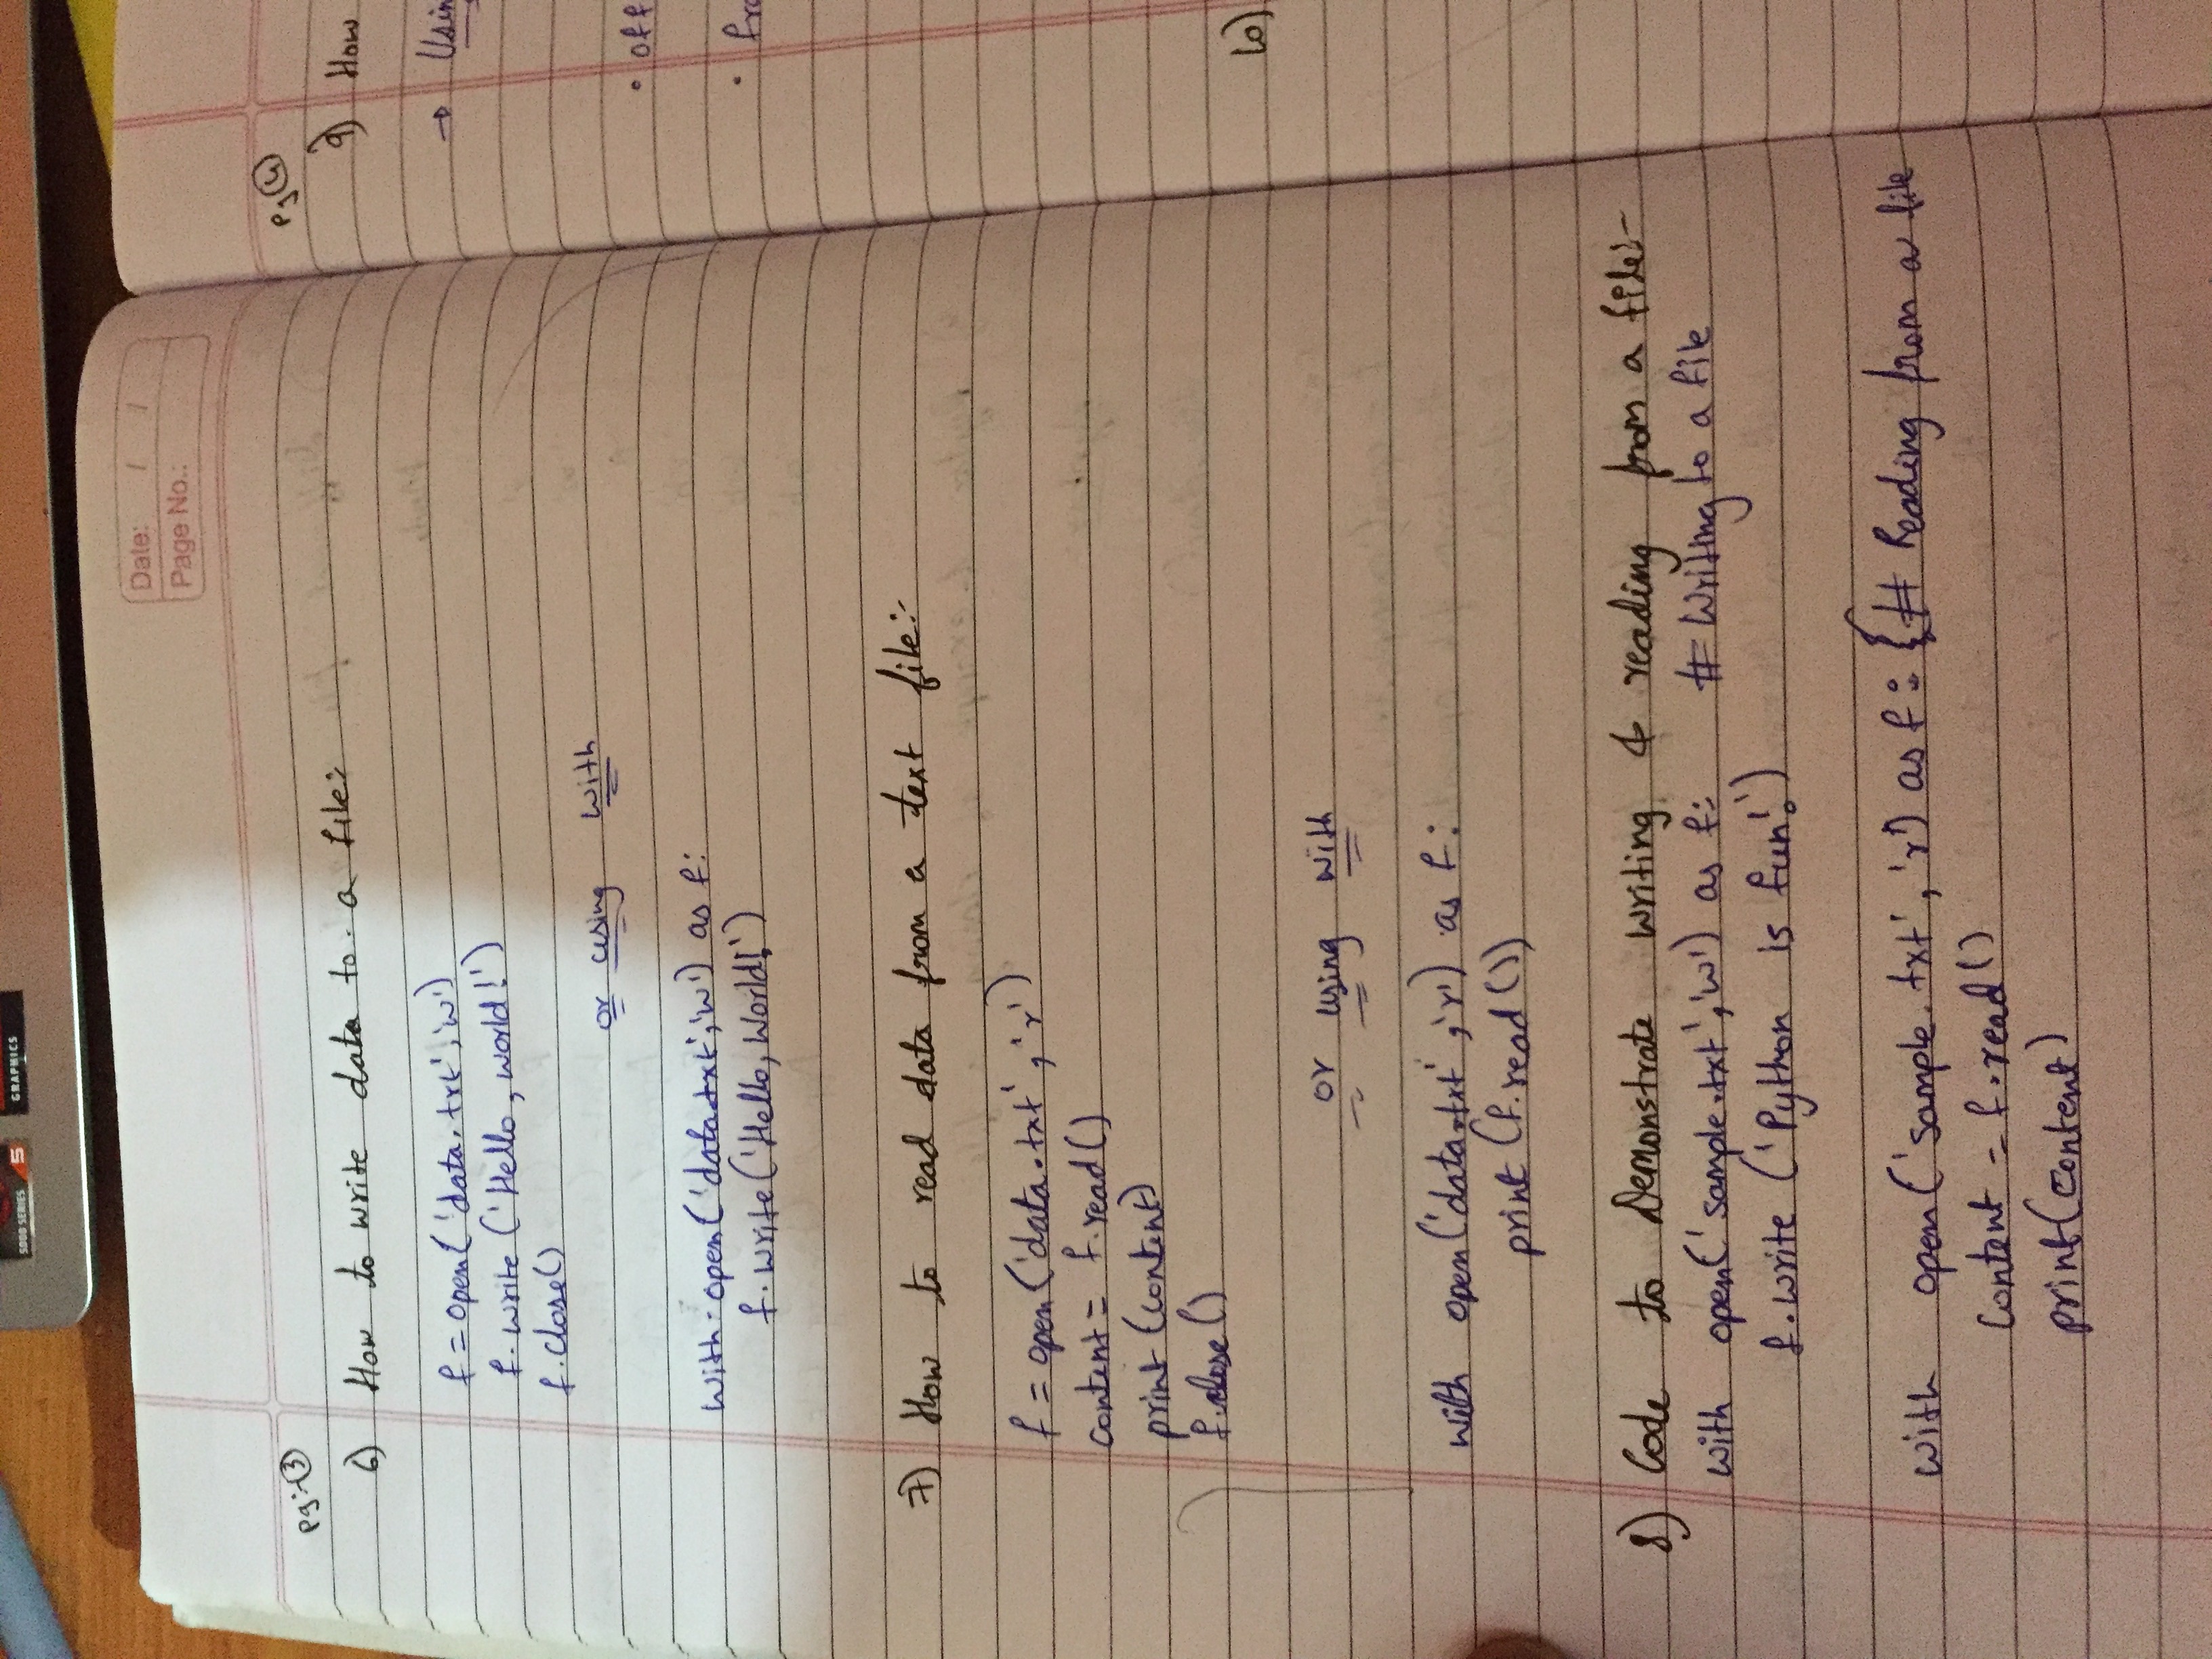 5000 SERIES 5
GRAPHICS
Date: / /
Page No.:
Pg:-③
6) How to write data to a file:
f = open('data.txt','w')
f.write('Hello, world!')
f.close()
or using with
with open('data.txt','w') as f:
f.write('Hello, World!')
7) How to read data from a text file:-
f = open('data.txt','r')
content = f.read()
print(content)
f.close()
or using with
with open('data.txt','r') as f:
print(f.read())
8) Code to Demonstrate writing & reading from a file:-
with open('sample.txt','w') as f: # Writing to a file
f.write('Python is fun!')
with open('sample.txt','r') as f: { # Reading from a file
Content = f.read()
print(content)
Pg④
9) How
→ Usin
• off
• fro
10)